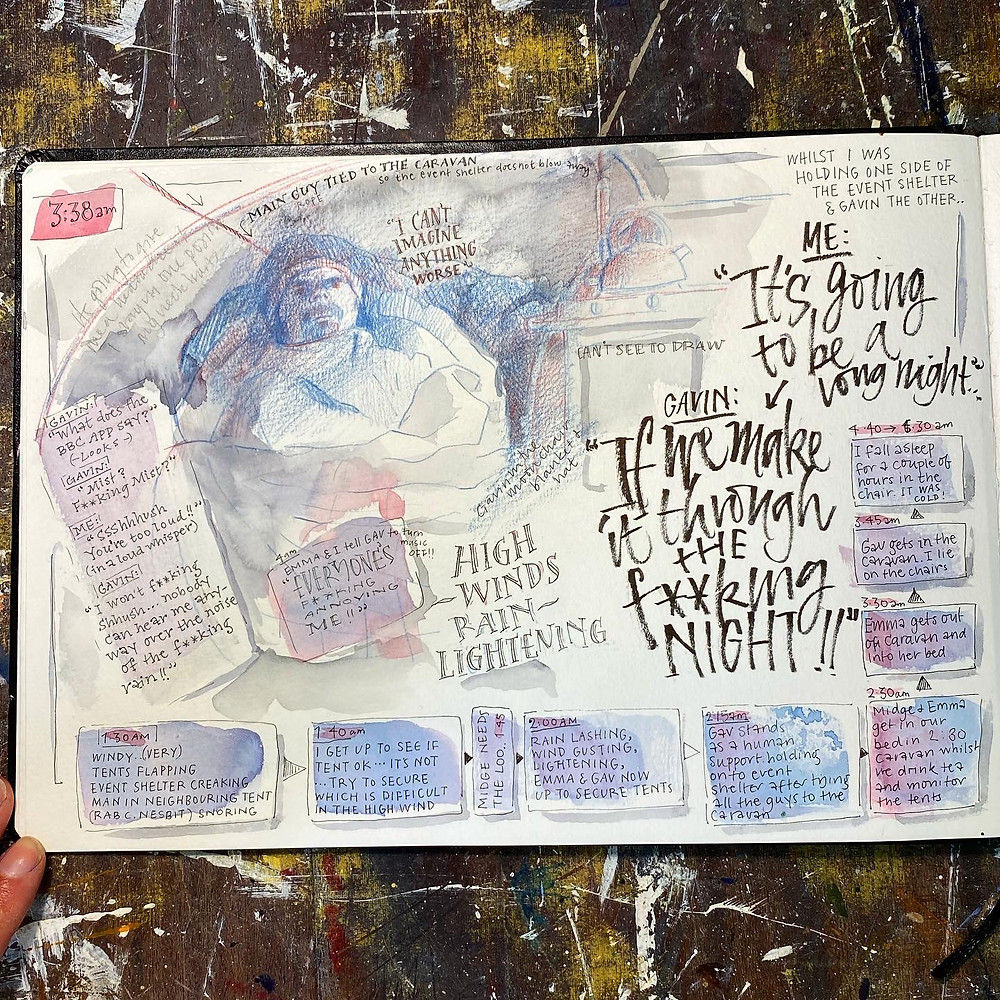 3:38am
MAIN GUY TIED TO THE CARAVAN
ROPE
so the event shelter does not blow away
"I CAN'T
IMAGINE
ANYTHING
WORSE"
It's going to give
CAN'T SEE TO DRAW
WHILST I WAS
HOLDING ONE SIDE OF
THE EVENT SHELTER
& GAVIN THE OTHER..
ME:
"It's going
to be a
long night."
GAVIN:
"If we make
it through
THE
f**king
NIGHT!!"
GAVIN:
"What does the
BBC APP SAY?"
(-Looks-)
GAVIN:
"Mist?
F**king Mist?"
ME:
"SSshhhush
You're too loud!!"
(in a loud whisper)
GAVIN:
"I won't f**king
shhush... nobody
can hear me any
way over the noise
of the f**king
rain!!"
Gavin in he
blanket
hat
4am
EMMA & I tell GAV to turn
music
OFF!!
"EVERYONE'S
F**KING
ANNOYING
ME!!"
HIGH
-WINDS
-RAIN-
LIGHTENING
1:30AM
WINDY..(VERY)
TENTS FLAPPING
EVENT SHELTER CREAKING
MAN IN NEIGHBOURING TENT
(RAB C.NESBIT) SNORING
1:40am
I GET UP TO SEE IF
TENT OK... ITS NOT
...TRY TO SECURE
WHICH IS DIFFICULT
IN THE HIGH WIND
MIDGE NEEDS
THE LOO.. 1:45
2:00AM
RAIN LASHING,
WIND GUSTING,
LIGHTENING,
EMMA & GAV NOW
UP TO SECURE TENTS
2:15am
Gav stands
as a human
support holding
onto event
shelter after tying
all the guys to the
Caravan
2:30am
Midge & Emma
get in our
bed in 2:30
Caravan whilst
we drink tea
and monitor
the tents
3:30am
Emma gets out
of Caravan and
into her bed
3:45am
Gav gets in the
Caravan. I lie
on the chairs
4:40 → 6:30am
I fall asleep
for a couple of
hours in the
chair. IT WAS
COLD!